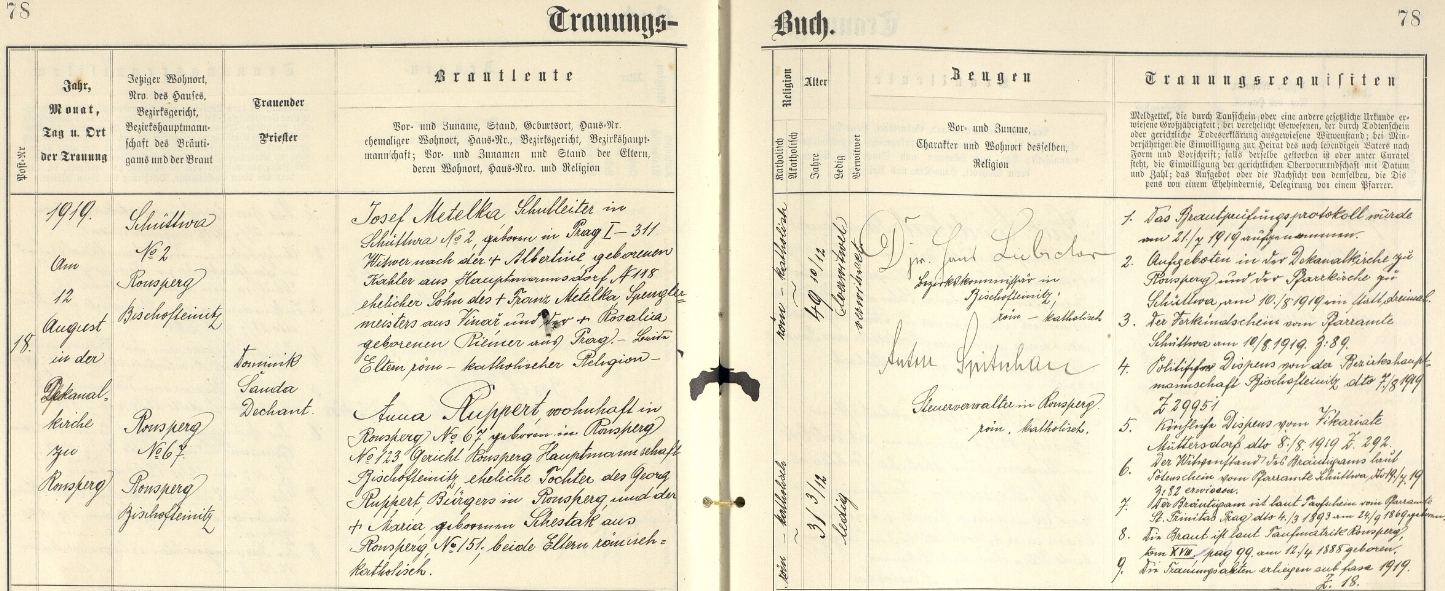 78
Trauungs-
Post-Nr
Jahr,
Monat,
Tag u. Ort
der Trauung
Jetziger Wohnort,
Nro. des Hauses,
Bezirksgericht,
Bezirkshauptmann-
schaft des Bräuti-
gams und der Braut
Trauender
Priester
Brautleute
Vor- und Zuname, Stand, Geburtsort, Haus-Nr.
ehemaliger Wohnort, Haus-Nr., Bezirksgericht, Bezirkshaupt-
mannschaft; Vor- und Zunamen und Stand der Eltern,
deren Wohnort, Haus-Nro. und Religion
18.
1919.
Am
12
August
in der
Dekanal-
kirche
zu
Ronsperg
Schüttwa
No 2
Ronsperg
Bischofteinitz
Ronsperg
No 67
Ronsperg
Bischofteinitz
Dominik
Sanda
Dechant.
Josef Metelka Schulleiter in
Schüttwa No 2, geboren in Prag I – 311
Witwer nach der + Albertine geborenen
Kahler aus Hauptmannsdorf N 118
ehelicher Sohn des + Franz Metelka, Spengler-
meisters aus Vinař und der + Rosalia
geborenen Riemer aus Prag. – Beide
Eltern röm – katholischer Religion –
Anna Ruppert, wohnhaft in
Ronsperg No 67, geboren in Ronsperg
No 123 Gericht Ronsperg Hauptmannschaft
Bischofteinitz, eheliche Tochter des Georg
Ruppert, Bürgers in Ronsperg, und der
+ Maria geborenen Schestak aus
Ronsperg, No 151, beide Eltern römisch-
katholisch.
Buch.
78
Religion
Katholisch
Akatholisch
Alter
Jahre
Ledig
Verwitwet
Zeugen
Vor- und Zuname,
Charakter und Wohnort desselben,
Religion
Trauungsrequisiten
Meldzettel, die durch Taufschein oder eine andere gesetzliche Urkunde er-
wiesene Großjährigkeit; bei verehelicht Gewesenen, der durch Todenschein
oder gerichtliche Todeserklärung ausgewiesene Witwenstand; bei Min-
derjährigen die Einwilligung zur Heirat des noch lebendigen Vaters nach
Form und Vorschrift; falls derselbe gestorben ist oder unter Curatel
steht, die Einwilligung der gerichtlichen Obervormundschaft mit Datum
und Zahl; das Aufgebot oder die Nachsicht von demselben, die Dis
pens von einem Ehehindernis, Delegirung von einem Pfarrer.
röm – katholisch
49 10/12
verwitwet
röm – katholisch
31 3/12
ledig
Hans
Bezirkskommissär in
Bischofteinitz,
röm – katholisch
Anton
Steuerverwalter in Ronsperg
röm. katholisch.
1. Das Brautprüfungsprotokoll wurde
am 21./7 1919 aufgenommen.
2. Aufgeboten in der Dekanalkirche zu
Ronsperg und der Pfarrkirche zu
Schüttwa, am 10./8 1919 ein dreimal.
3. Der Verkündschein vom Pfarramte
Schüttwa am 10/8 1919. Z: 89.
4. Dispens von der Bezirkshaupt-
mannschaft Bischofteinitz, dto 7./8 1919
Z 29951
5. Kirchliche Dispens vom Vikariate
Muttersdorf dto 8./8. 1919 Z. 292.
6. Der Witwenstand des Bräutigams laut
Totenschein vom Pfarramte Schüttwa,
Z: 82 erwiesen.
7. Der Bräutigam ist laut Taufschein vom Pfarramte
St. Trinitas Prag dto 4./3 1893 am 24/9 1869 geboren.
8. Die Braut ist laut Taufmatrik Ronsperg,
tom XVIII, pag 99, am 12./4 1888 geboren.
9. Die Trauungsakten erliegen sub fasc 1919.
Z. 18.